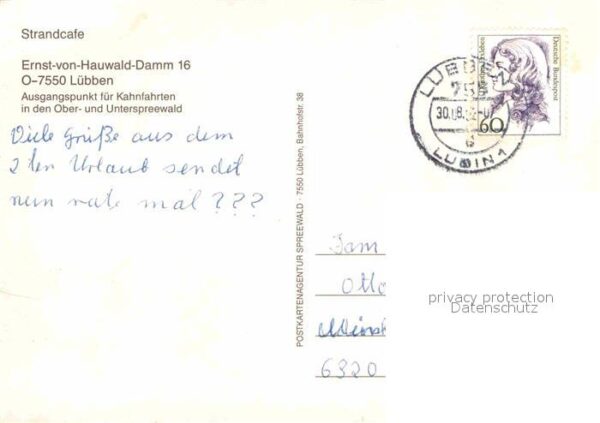 Strandcafe
Ernst-von-Hauwald-Damm 16
O-7550 Lübben
Ausgangspunkt für Kahnfahrten
in den Ober- und Unterspreewald
Viele Grüße aus dem
2ten Urlaub sendet
nun rate mal ???
POSTKARTENAGENTUR SPREEWALD · 7550 Lübben, Bahnhofstr. 38
Deutsche Bundespost
60
30.
LUBIN 1
Fam
Otto
6320
privacy protection
Datenschutz